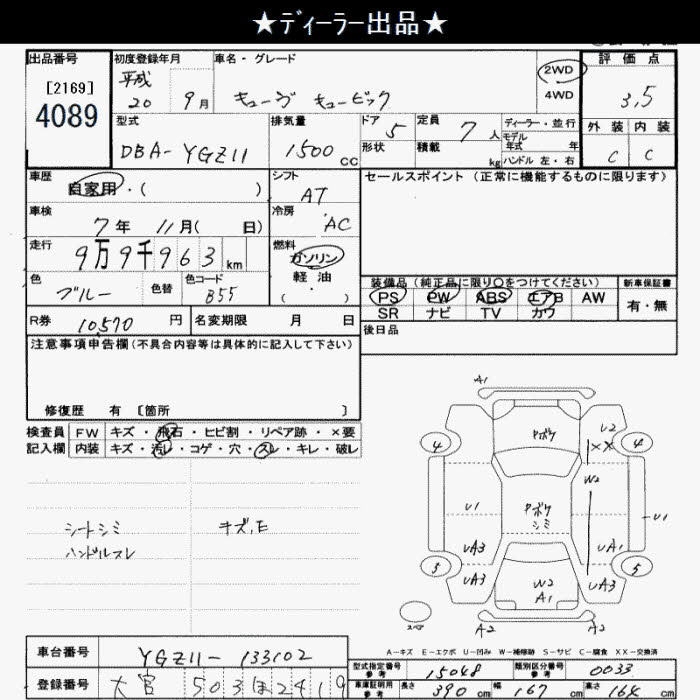 ★ディーラー出品★
出品番号
[2169]
4089
初度登録年月
平成
20 9月
車名・グレード
キューブ キュービック
2WD
4WD
評価点
3.5
外装 内装
C C
型式
DBA-YGZ11
排気量
1500 CC
ドア 5
形状
定員 7人
積載 kg
ディーラー・並行
モデル
年式 年
ハンドル 左・右
車歴
自家用・( )
シフト
AT
セールスポイント(正常に機能するものに限ります)
車検
7年 11月( 日)
冷房
AC
走行
9万9千963km
燃料
ガソリン
軽・油
( )
色
ブルー
色替
色コード
B55
装備品(純正品に限り○をつけてください)
PS PW ABS エアB AW
SR ナビ TV カワ
新車保証書
有・無
R券 10,570 円
名変期限 月 日
後日品
注意事項申告欄(不具合内容等は具体的に記入して下さい)
修復歴 有 [箇所 ]
検査員
記入欄
FW キズ・飛石・ヒビ割・リペア跡・×要
内装 キズ・汚レ・コゲ・穴・スレ・キレ・破レ
シートシミ
ハンドルスレ
キズ、E
A1
4
4
Pボケ
U2
××
W2
U1
Pボケ
シミ
U1
UA3
UA1
5
5
UA3
W2
A1
UA3
スペア
A2
A2
A-キズ E-エクボ U-凹み W-補修跡 S-サビ C-腐食 XX-交換済
車台番号
YGZ11-133102
登録番号
大宮 503ほ2419
型式指定番号
参考
15048
類別区分番号
参考
0033
車庫証明用
参考
長さ 390cm
幅 167cm
高さ 164cm